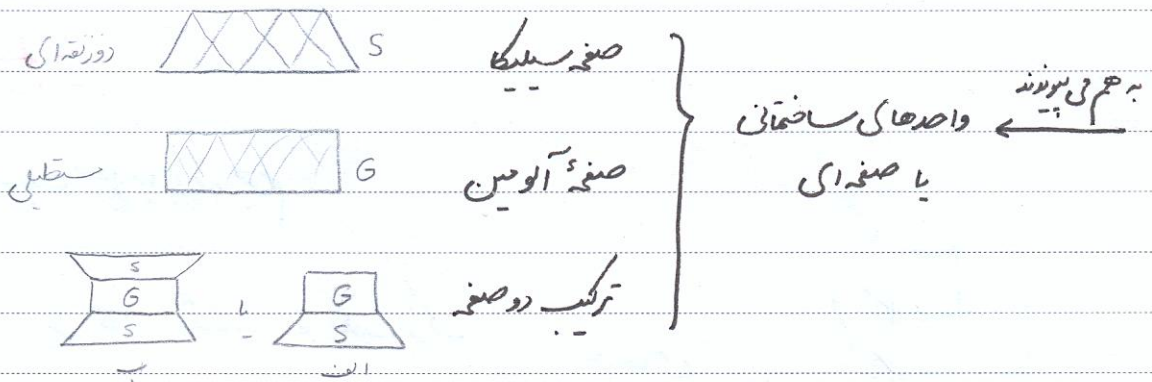 به هم می پیوندند
واحدهای ساختمانی
یا صفحه ای
صفحه سیلیکا
S
ذوزنقه ای
صفحهٔ آلومین
G
مستطیلی
ترکیب دو صفحه
G
S
الف
یا
S
G
S
ب